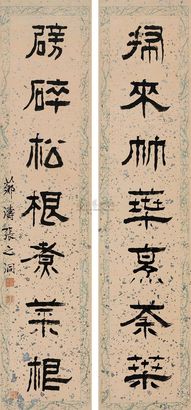 掃來竹葉烹茶葉
劈碎松根煮菜根
張之洞